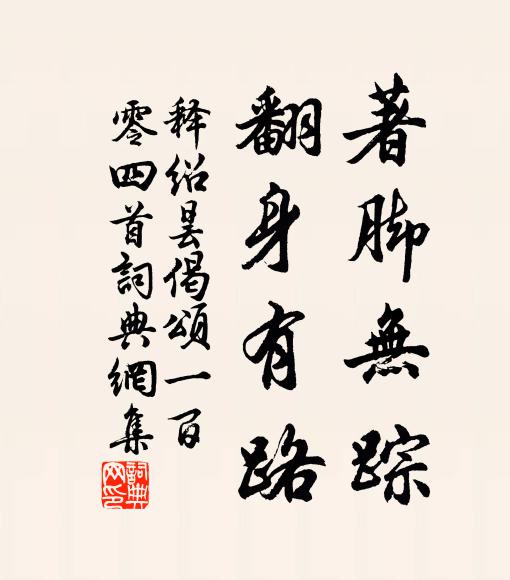 著脚無踪
翻身有路
释绍昙偈頌一百
零四首詞典網集
詞典网印